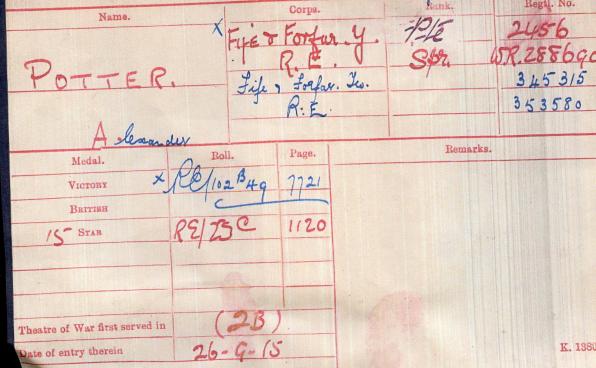 Name. Corps. Rank. Regtl. No.
x Fife & Forfar. Y. Pte 2456
POTTER. R.E. Spr. WR.288690
Fife & Forfar. Yeo. 345315
R.E. 353580
Alexander
Medal. Roll. Page. Remarks.
VICTORY x RE/102 B49 7721
BRITISH
15 STAR RE/25C 1120
Theatre of War first served in (2B)
Date of entry therein 26-9-15
K. 1380